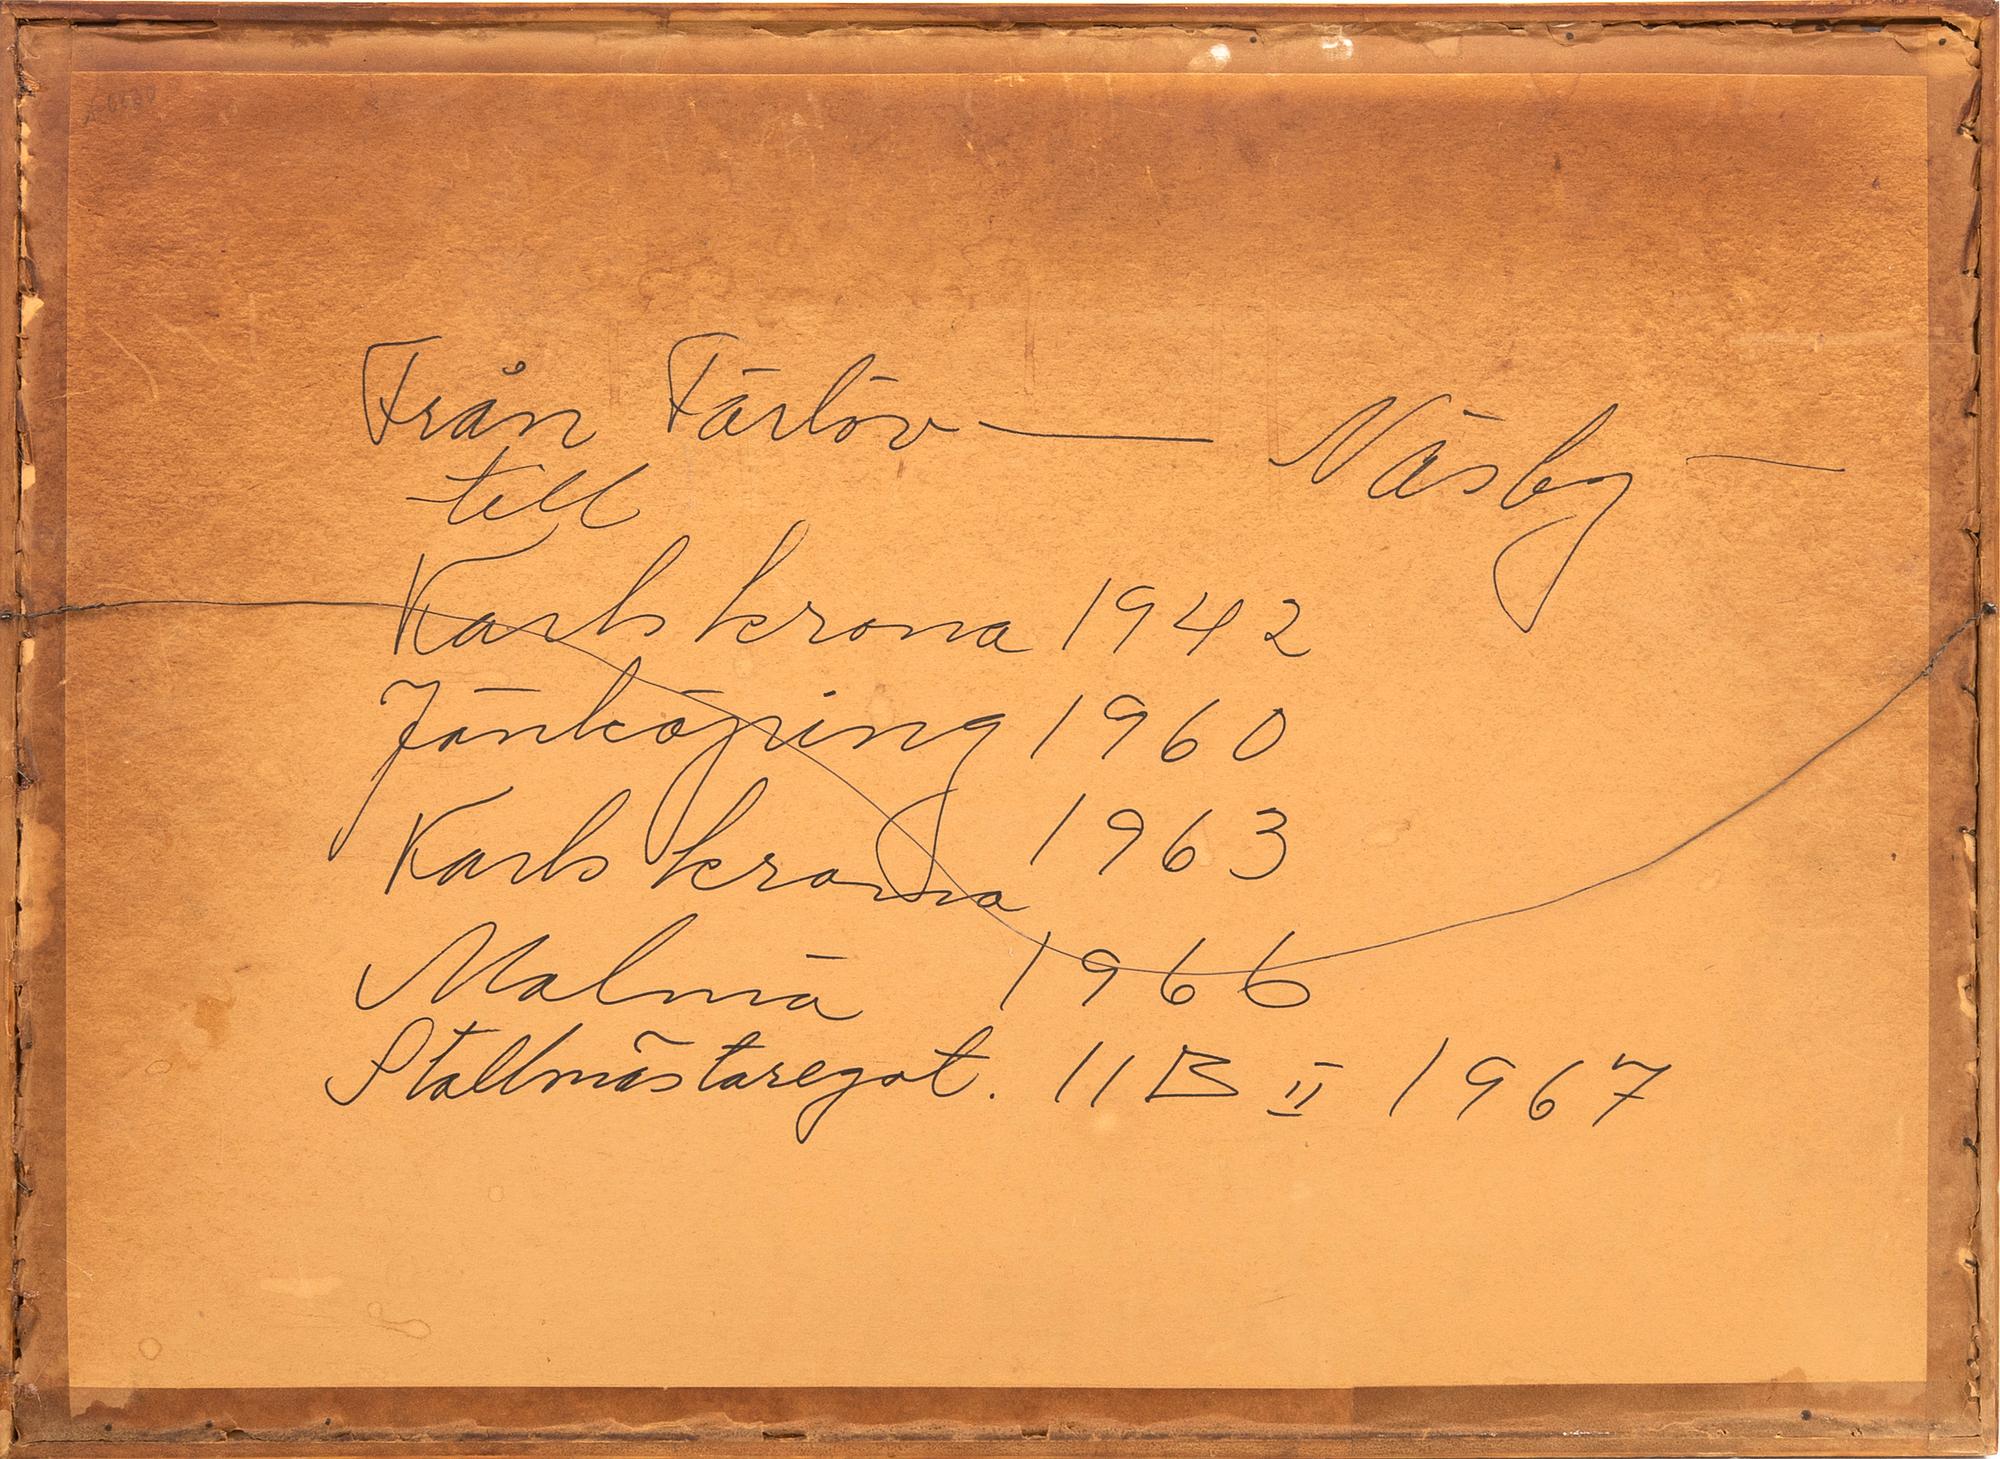 Från Färlöv — Näsby —
till
Karlskrona 1942
Jönköping 1960
Karlskrona 1963
Malmö 1966
Stallmästaregat. 11 B II 1967